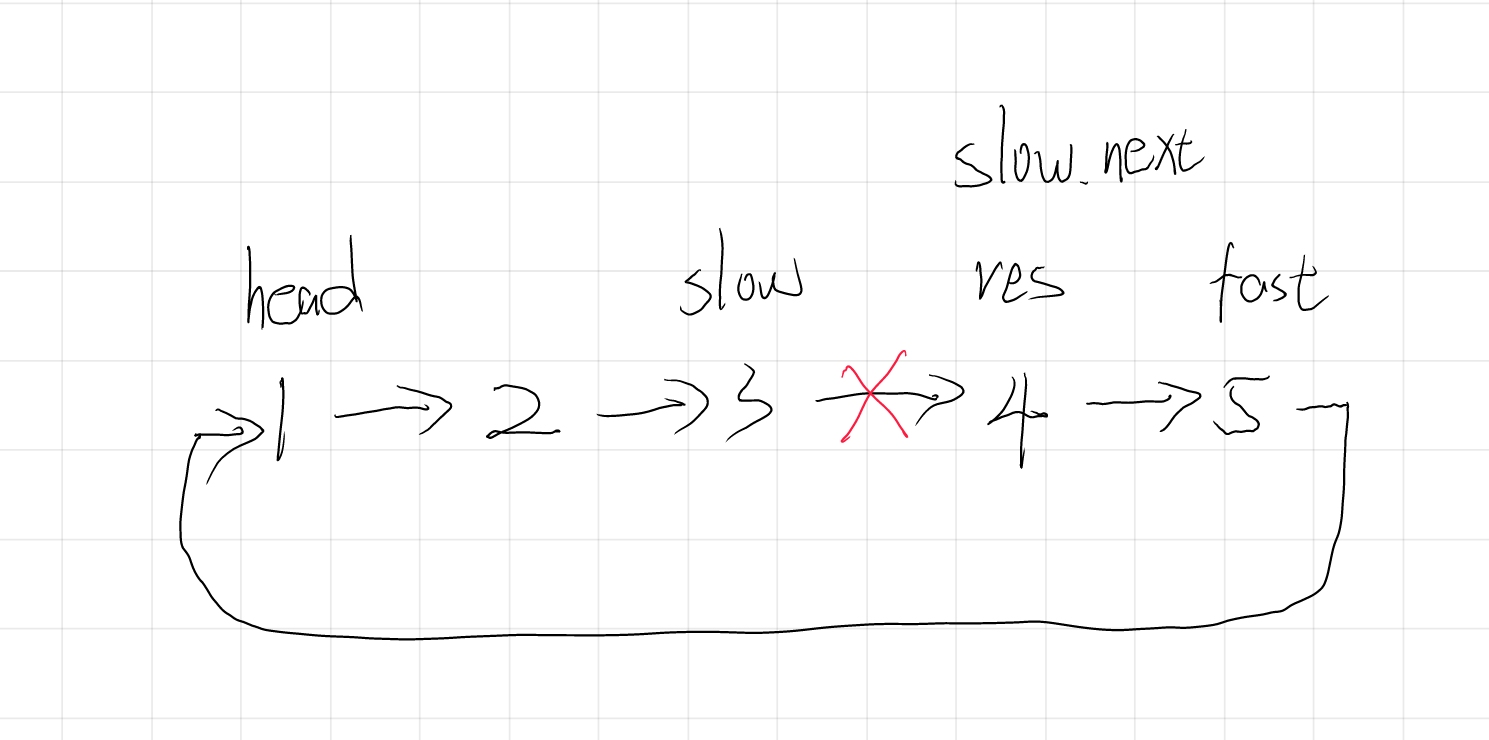 slow.next
head slow res fast
1 → 2 → 3 → 4 → 5